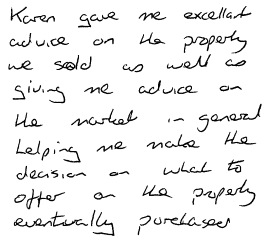 Karen gave me excellent
advice on the property
we sold as well as
giving me advice on
the market in general
helping me make the
decision on what to
offer on the property
eventually purchased